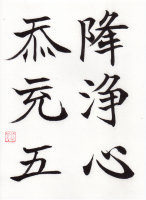 降浄心
忝充五